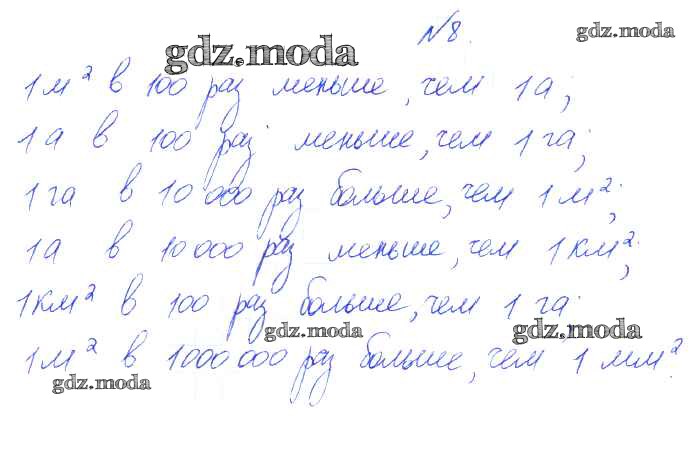 №8.
gdz.moda
gdz.moda
1 м² в 100 раз меньше, чем 1а;
1а в 100 раз меньше, чем 1 га;
1 га в 10 000 раз больше, чем 1 м²;
1а в 10 000 раз меньше, чем 1 км²;
1 км² в 100 раз больше, чем 1 га.
gdz.moda
gdz.moda
1 м² в 1000 000 раз больше, чем 1 мм²
gdz.moda